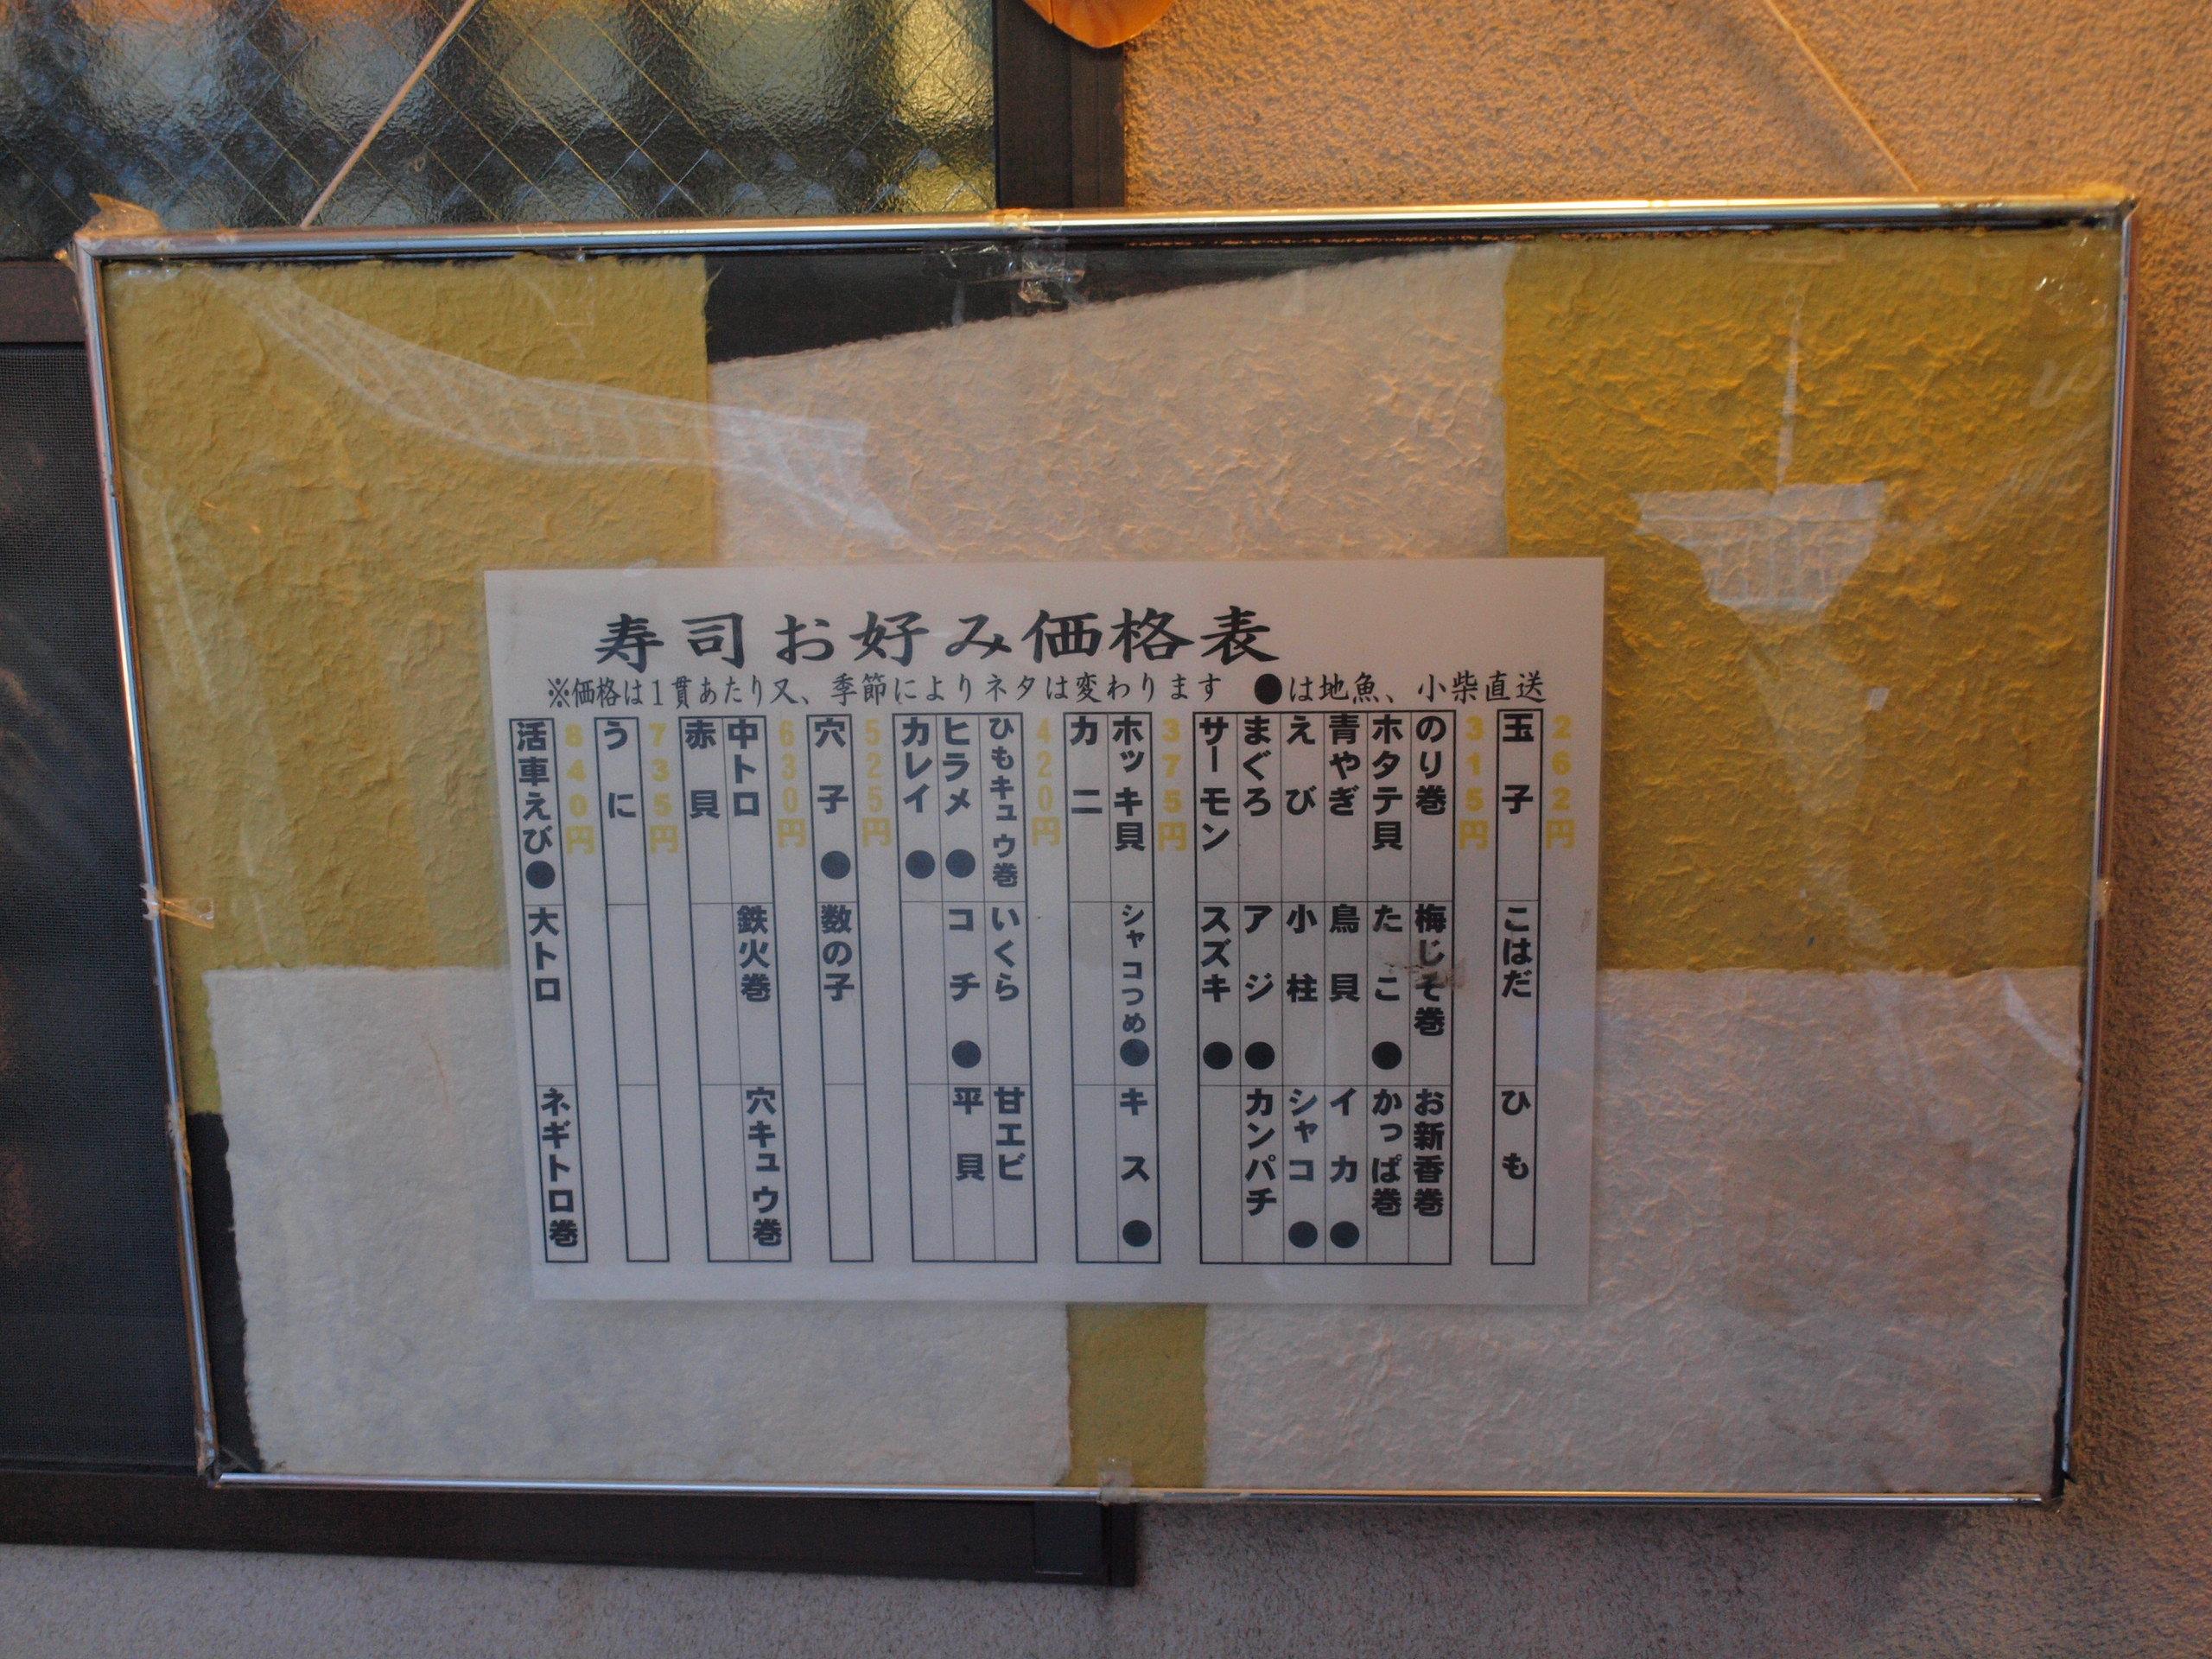 寿司お好み価格表
※価格は1貫あたり又、季節によりネタは変わります ●は地魚、小柴直送
262円
玉子 こはだ ひも
315円
のり巻 梅じそ巻 お新香巻
ホタテ貝 たこ● かっぱ巻
青やぎ 鳥貝 イカ●
えび 小柱 シャコ●
まぐろ アジ● カンパチ
サーモン スズキ●
375円
ホッキ貝 シャコつめ● キス●
カニ
420円
ひもキュウ巻 いくら 甘エビ
ヒラメ● コチ● 平貝
カレイ●
525円
穴子● 数の子
630円
中トロ 鉄火巻 穴キュウ巻
赤貝
735円
うに
840円
活車えび● 大トロ ネギトロ巻